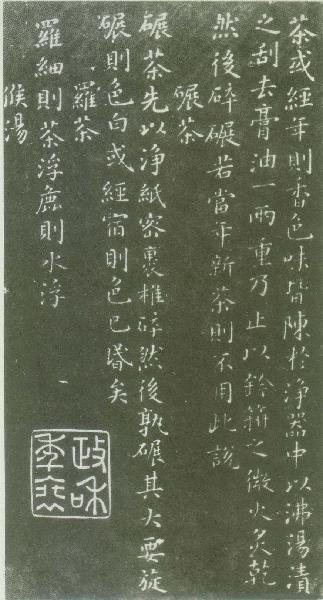 茶或經年則香色味皆陳於淨器中以沸湯漬
之刮去膏油一兩重乃止以鈐箝之微火炙乾
然後碎碾若當年新茶則不用此說
碾茶
碾茶先以淨紙密裹椎碎然後孰碾其大要旋
碾則色白或經宿則色已昬矣
羅茶
羅細則茶浮麁則水浮
候湯
政和